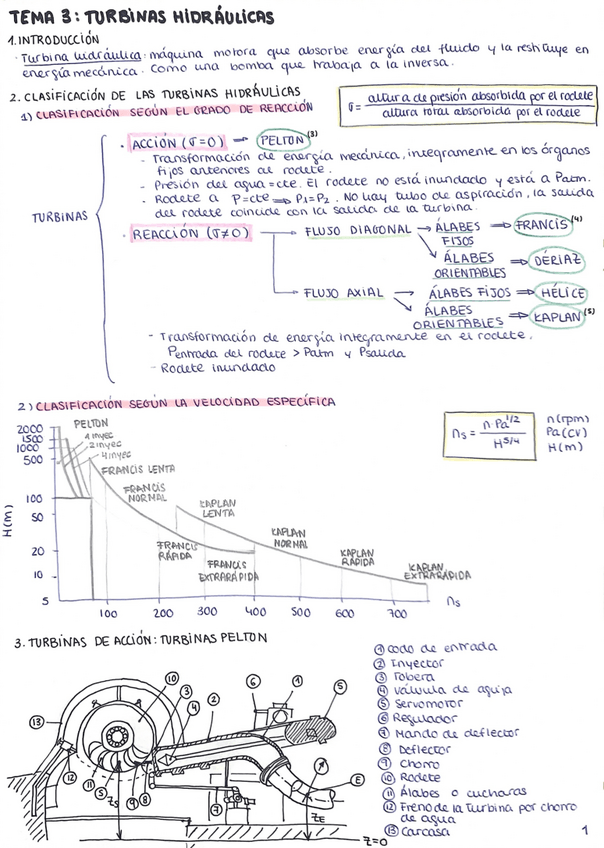 TEMA 3: TURBINAS HIDRÁULICAS
1. INTRODUCCIÓN
· Turbina hidráulica: máquina motora que absorbe energía del fluido y la restituye en
energía mecánica. Como una bomba que trabaja a la inversa.
2. CLASIFICACIÓN DE LAS TURBINAS HIDRÁULICAS
1) CLASIFICACIÓN SEGÚN EL GRADO DE REACCIÓN
σ = altura de presión absorbida por el rodete / altura total absorbida por el rodete
TURBINAS
· ACCIÓN (σ=0) → PELTON (3)
- Transformación de energía mecánica, integramente en los órganos
fijos anteriores al rodete.
- Presión del agua = cte. El rodete no está inundado y está a Patm.
- Rodete a P=cte ⇒ P1=P2. No hay tubo de aspiración, la salida
del rodete coincide con la salida de la turbina.
· REACCIÓN (σ≠0) → FLUJO DIAGONAL → ÁLABES FIJOS ⇒ FRANCIS (4)
ÁLABES ORIENTABLES ⇒ DÉRIAZ
FLUJO AXIAL → ÁLABES FIJOS ⇒ HÉLICE
ÁLABES ORIENTABLES ⇒ KAPLAN (5)
- Transformación de energía integramente en el rodete.
Pentrada del rodete > Patm y Psalida
- Rodete inundado
2) CLASIFICACIÓN SEGÚN LA VELOCIDAD ESPECÍFICA
ns = n·Pa^1/2 / H^5/4
n (rpm)
Pa (CV)
H (m)
H(m)
2000
1500
1000
500
100
50
20
10
5
PELTON
1 inyec
2 inyec
4 inyec
FRANCIS LENTA
FRANCIS NORMAL
FRANCIS RÁPIDA
FRANCIS EXTRARÁPIDA
KAPLAN LENTA
KAPLAN NORMAL
KAPLAN RÁPIDA
KAPLAN EXTRARÁPIDA
100 200 300 400 500 600 700 ns
3. TURBINAS DE ACCIÓN: TURBINAS PELTON
① Codo de entrada
② Inyector
③ Tobera
④ Válvula de aguja
⑤ Servomotor
⑥ Regulador
⑦ Mando de deflector
⑧ Deflector
⑨ Chorro
⑩ Rodete
⑪ Álabes o cucharas
⑫ Freno de la turbina por chorro
de agua
⑬ Carcasa
10
3
4
2
6
1
5
13
12
11
S
zs
9
8
7
E
zE
z=0
1